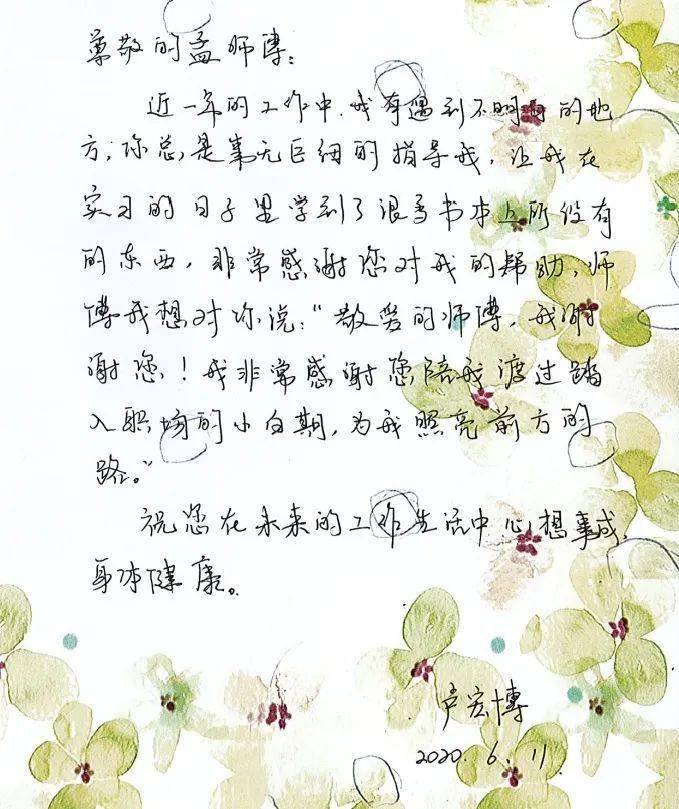 尊敬的孟师傅：
近一年的工作中，我有遇到不明白的地
方，你总是事无巨细的指导我，让我在
实习的日子里学到了很多书本上所没有
的东西，非常感谢您对我的帮助，师
傅我想对你说：“敬爱的师傅，我谢
谢您！我非常感谢您陪我渡过踏
入职场的小白期，为我照亮前方的
路。”
祝您在未来的工作生活中心想事成，
身体健康。
卢宏博
2020.6.11